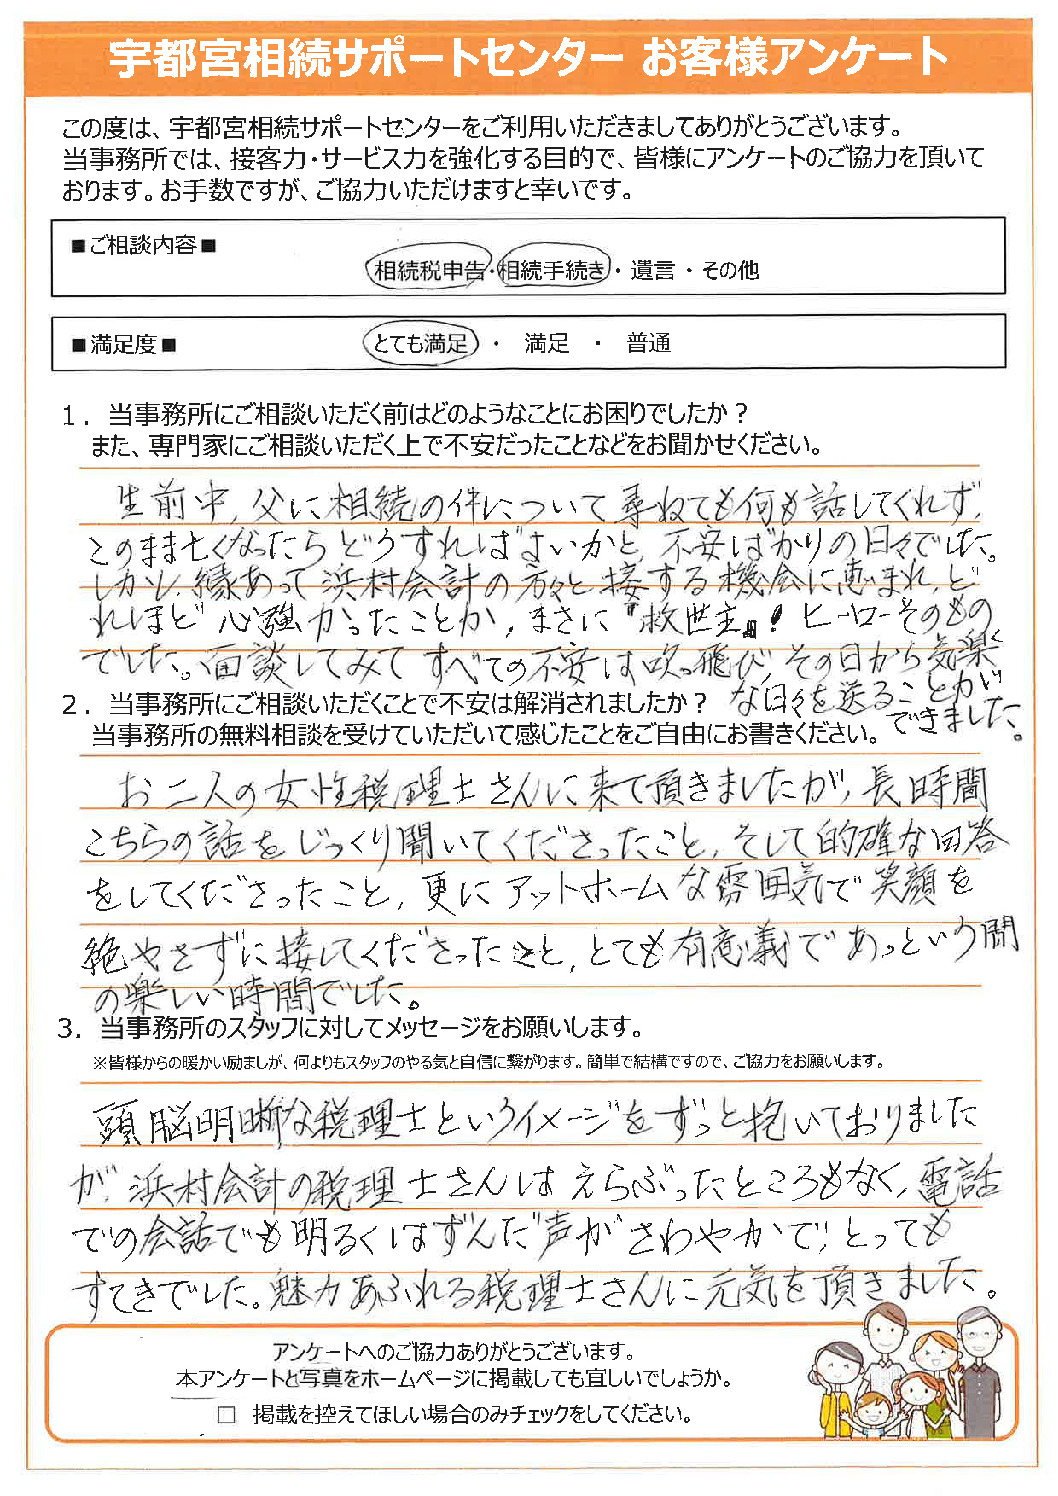 宇都宮相続サポートセンター お客様アンケート
この度は、宇都宮相続サポートセンターをご利用いただきましてありがとうございます。
当事務所では、接客力・サービス力を強化する目的で、皆様にアンケートのご協力を頂いて
おります。お手数ですが、ご協力いただけますと幸いです。
■ご相談内容■
相続税申告・相続手続き・遺言・その他
■満足度■
とても満足・満足・普通
1．当事務所にご相談いただく前はどのようなことにお困りでしたか？
また、専門家にご相談いただく上で不安だったことなどをお聞かせください。
生前中，父に相続の件について尋ねても何も話してくれず，
このまま亡くなったらどうすればよいかと，不安ばかりの日々でした。
しかし，縁あって浜村会計の方々と接する機会に恵まれ，ど
れほど心強かったことか，まさに『救世主』！ヒーローそのもの
でした。面談してみてすべての不安は吹っ飛び，その日から気楽
な日々を送ることが
できました。
2．当事務所にご相談いただくことで不安は解消されましたか？
当事務所の無料相談を受けていただいて感じたことをご自由にお書きください。
お二人の女性税理士さんに来て頂きましたが，長時間
こちらの話をじっくり聞いてくださったこと，そして的確な回答
をしてくださったこと，更にアットホームな雰囲気で笑顔を
絶やさずに接してくださったこと，とても有意義であっという間
の楽しい時間でした。
3．当事務所のスタッフに対してメッセージをお願いします。
※皆様からの暖かい励ましが、何よりもスタッフのやる気と自信に繋がります。簡単で結構ですので、ご協力をお願いします。
頭脳明晰な税理士というイメージをずっと抱いておりました
が，浜村会計の税理士さんはえらぶったところもなく，電話
での会話でも明るくはずんだ声がさわやかで，とっても
すてきでした。魅力あふれる税理士さんに元気を頂きました。
アンケートへのご協力ありがとうございます。
本アンケートと写真をホームページに掲載しても宜しいでしょうか。
□ 掲載を控えてほしい場合のみチェックをしてください。